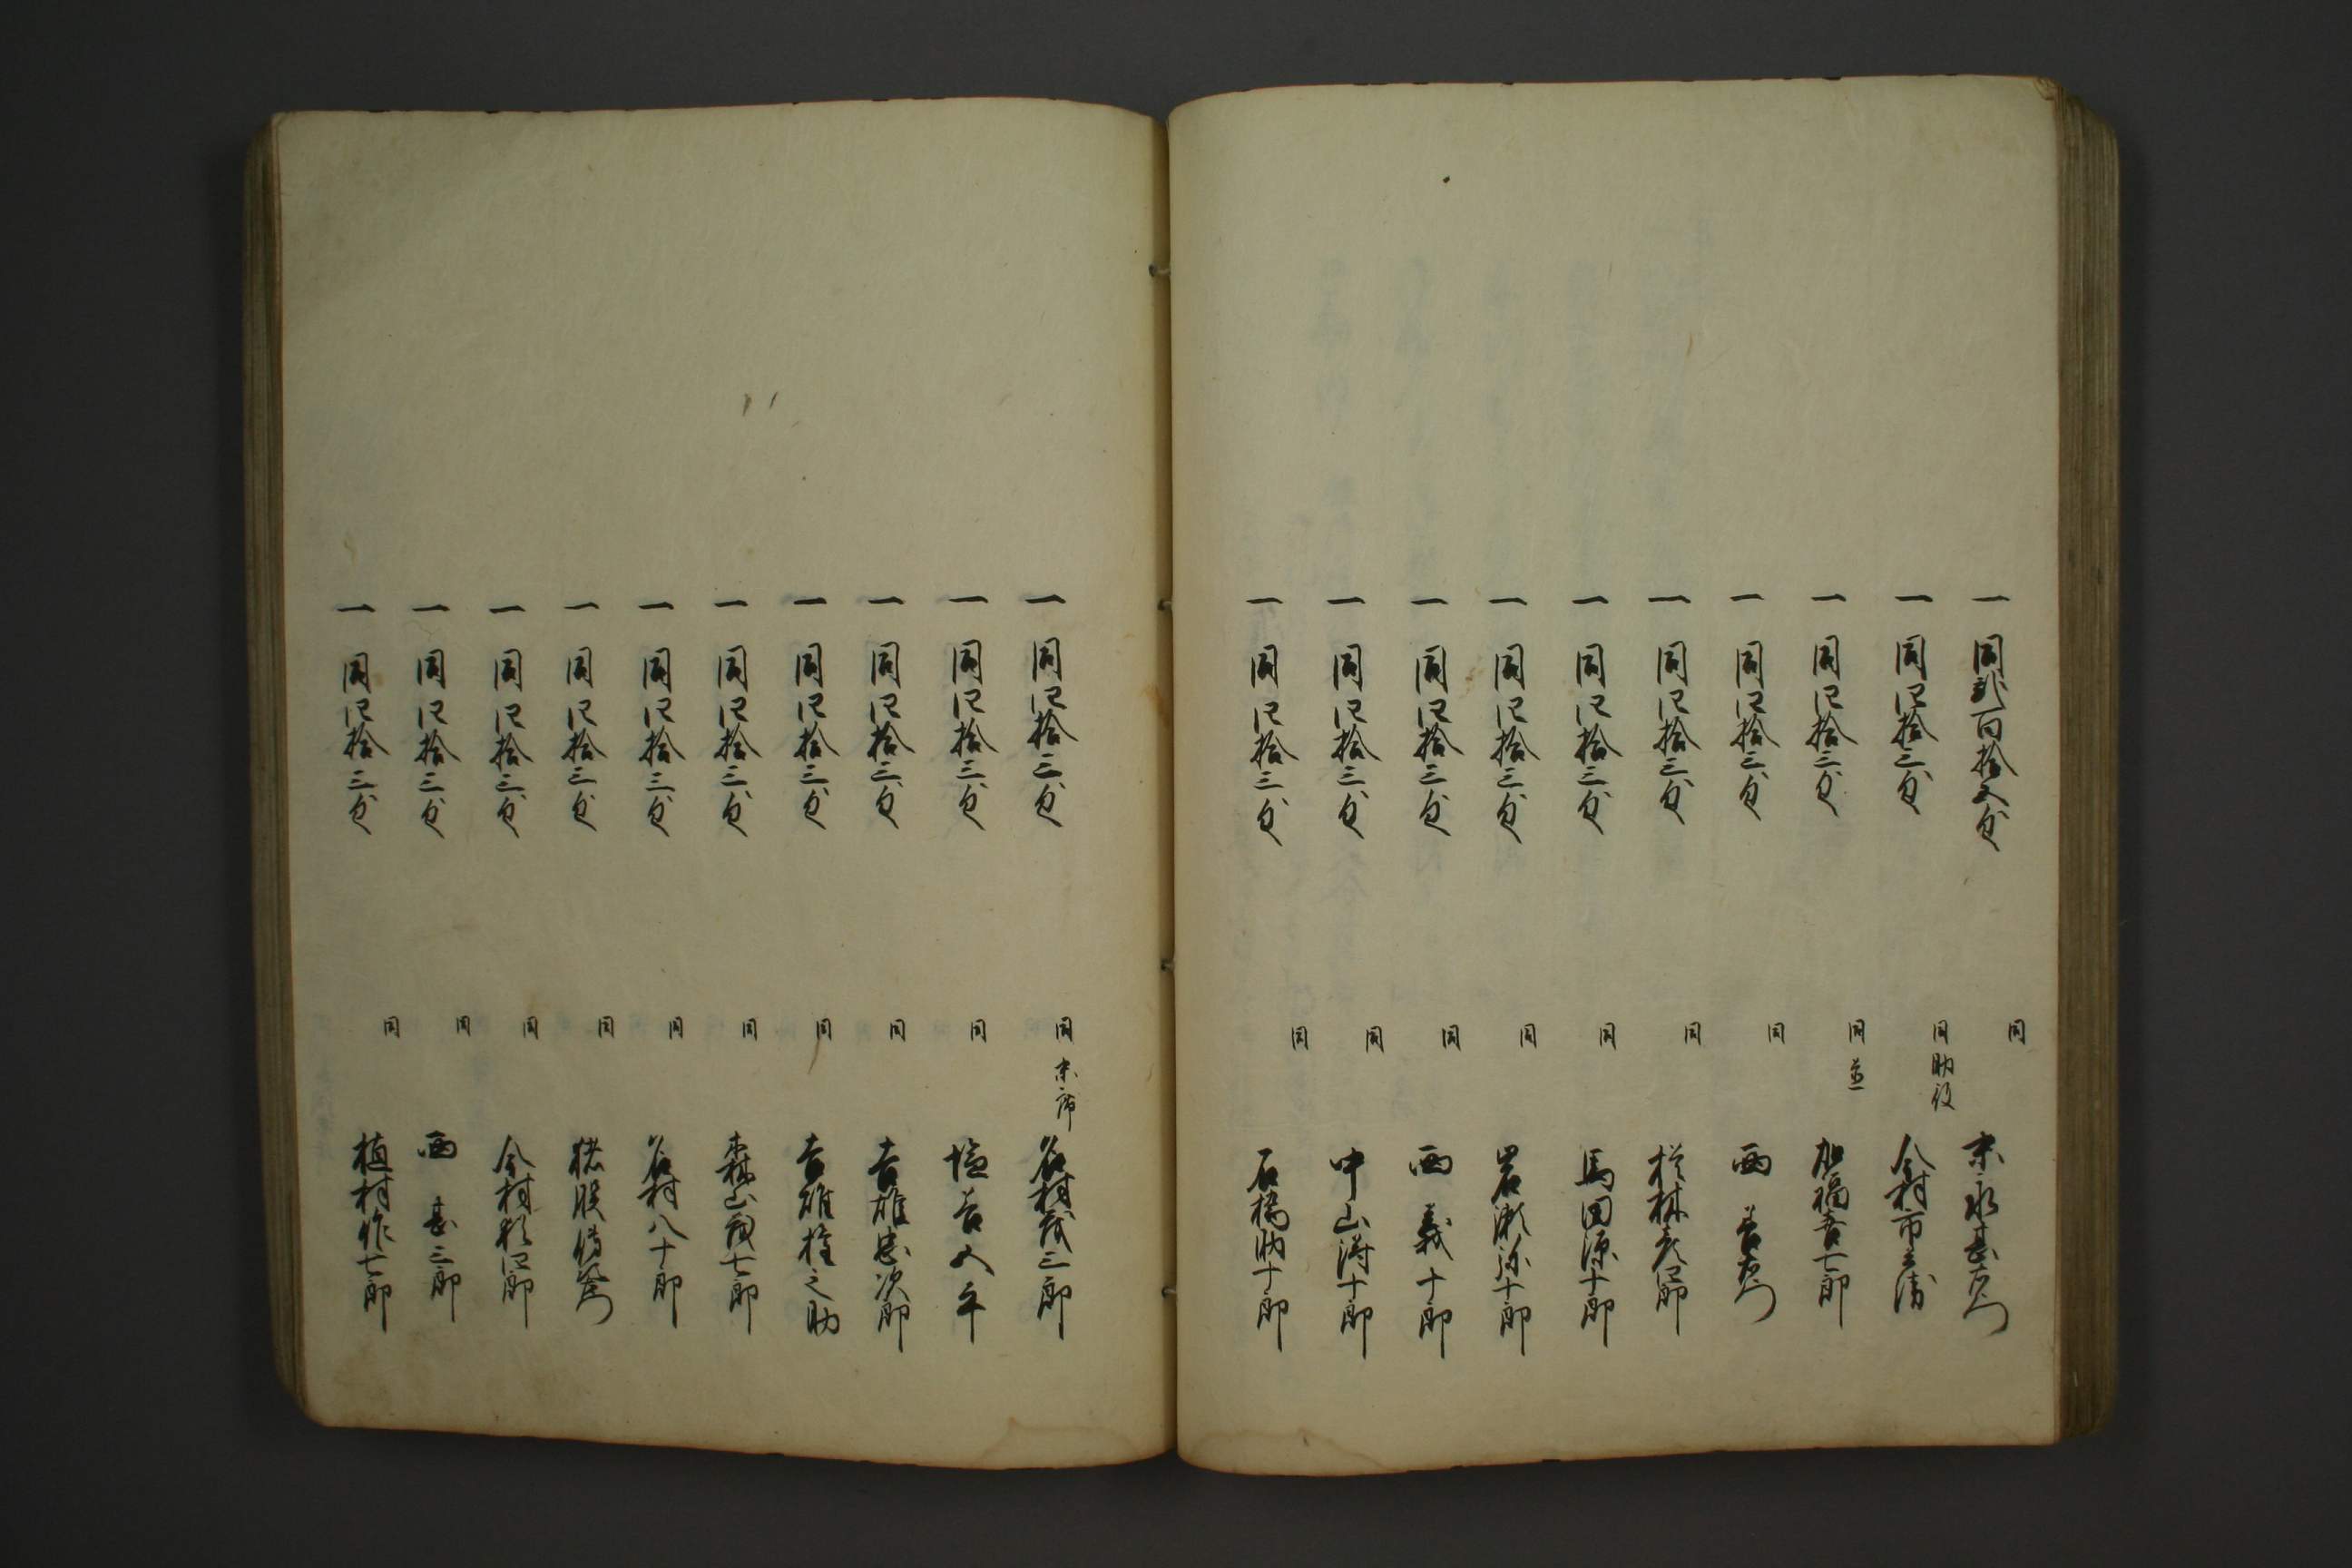 一 同弐百拾五匁 同 末永甚左衛門
一 同四拾三匁 同助役 今村市兵衛
一 同四拾三匁 同並 加福喜七郎
一 同四拾三匁 同 西吉右衛門
一 同四拾三匁 同 楢林彦四郎
一 同四拾三匁 同 馬田源十郎
一 同四拾三匁 同 岩瀬弥十郎
一 同四拾三匁 同 西義十郎
一 同四拾三匁 同 中山得十郎
一 同四拾三匁 同 石橋助十郎
一 同四拾三匁 同末席 名村茂三郎
一 同四拾三匁 同 塩谷五平
一 同四拾三匁 同 吉雄忠次郎
一 同四拾三匁 同 吉雄権之助
一 同四拾三匁 同 森山茂七郎
一 同四拾三匁 同 名村八十郎
一 同四拾三匁 同 猪股伝右衛門
一 同四拾三匁 同 今村猶四郎
一 同四拾三匁 同 西甚三郎
一 同四拾三匁 同 植村作七郎